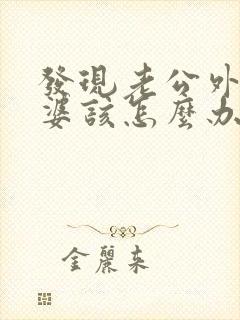 發現老公外
婆該怎麼办
金麗来